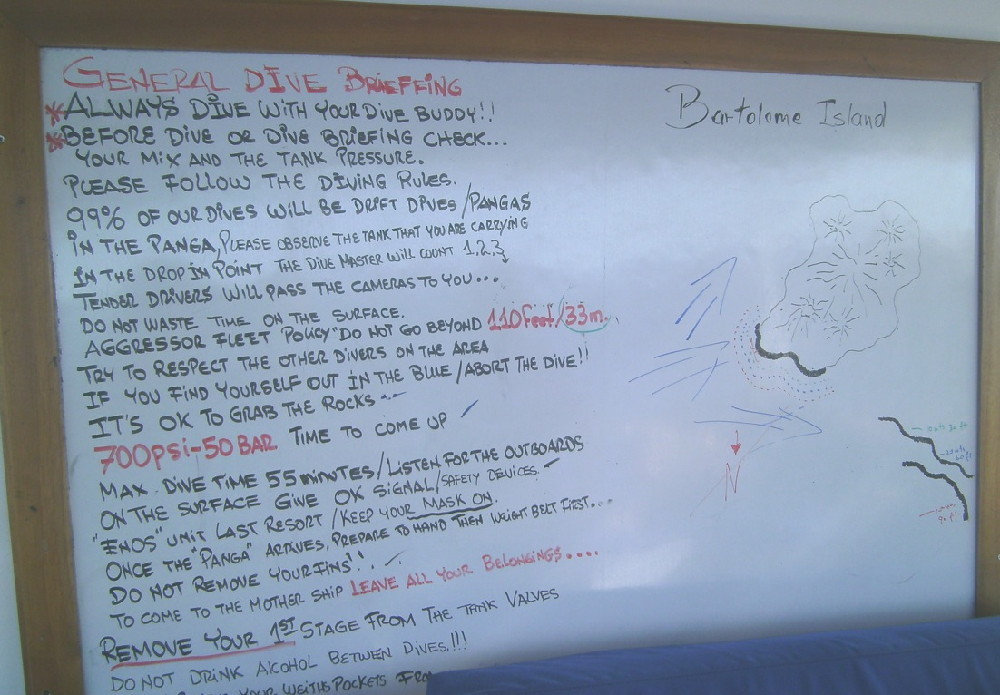 GENERAL DIVE BRIEFFING
*ALWAYS DIVE WITH YOUR DIVE BUDDY!!
*BEFORE DIVE OR DIVE BRIEFING CHECK...
YOUR MIX AND THE TANK PRESSURE.
PLEASE FOLLOW THE DIVING RULES.
99% OF OUR DIVES WILL BE DRIFT DIVES/PANGAS
IN THE PANGA, PLEASE OBSERVE THE TANK THAT YOU ARE CARRYING
IN THE DROP IN POINT THE DIVE MASTER WILL COUNT 1,2,3
TENDER DRIVERS WILL PASS THE CAMERAS TO YOU...
DO NOT WASTE TIME ON THE SURFACE.
AGGRESSOR FLEET "POLICY" DO NOT GO BEYOND 110 Feet/33m.
TRY TO RESPECT THE OTHER DIVERS ON THE AREA
IF YOU FIND YOURSELF OUT IN THE BLUE/ABORT THE DIVE!!
IT'S OK TO GRAB THE ROCKS
700psi-50 BAR TIME TO COME UP
MAX. DIVE TIME 55 minutes/LISTEN FOR THE OUTBOARDS
ON THE SURFACE GIVE OK SIGNAL/SAFETY DEVICES.
"ENOS" UNIT LAST RESORT/KEEP YOUR MASK ON.
ONCE THE "PANGA" ARRIVES, PREPARE TO HAND THEM WEIGHT BELT FIRST...
DO NOT REMOVE YOUR FINS!!
TO COME TO THE MOTHER SHIP LEAVE ALL YOUR BELONGINGS....
REMOVE YOUR 1ST STAGE FROM THE TANK VALVES
DO NOT DRINK ALCOHOL BETWEEN DIVES!!!
YOUR WEITHS POCKETS FROM
Bartolome Island
N